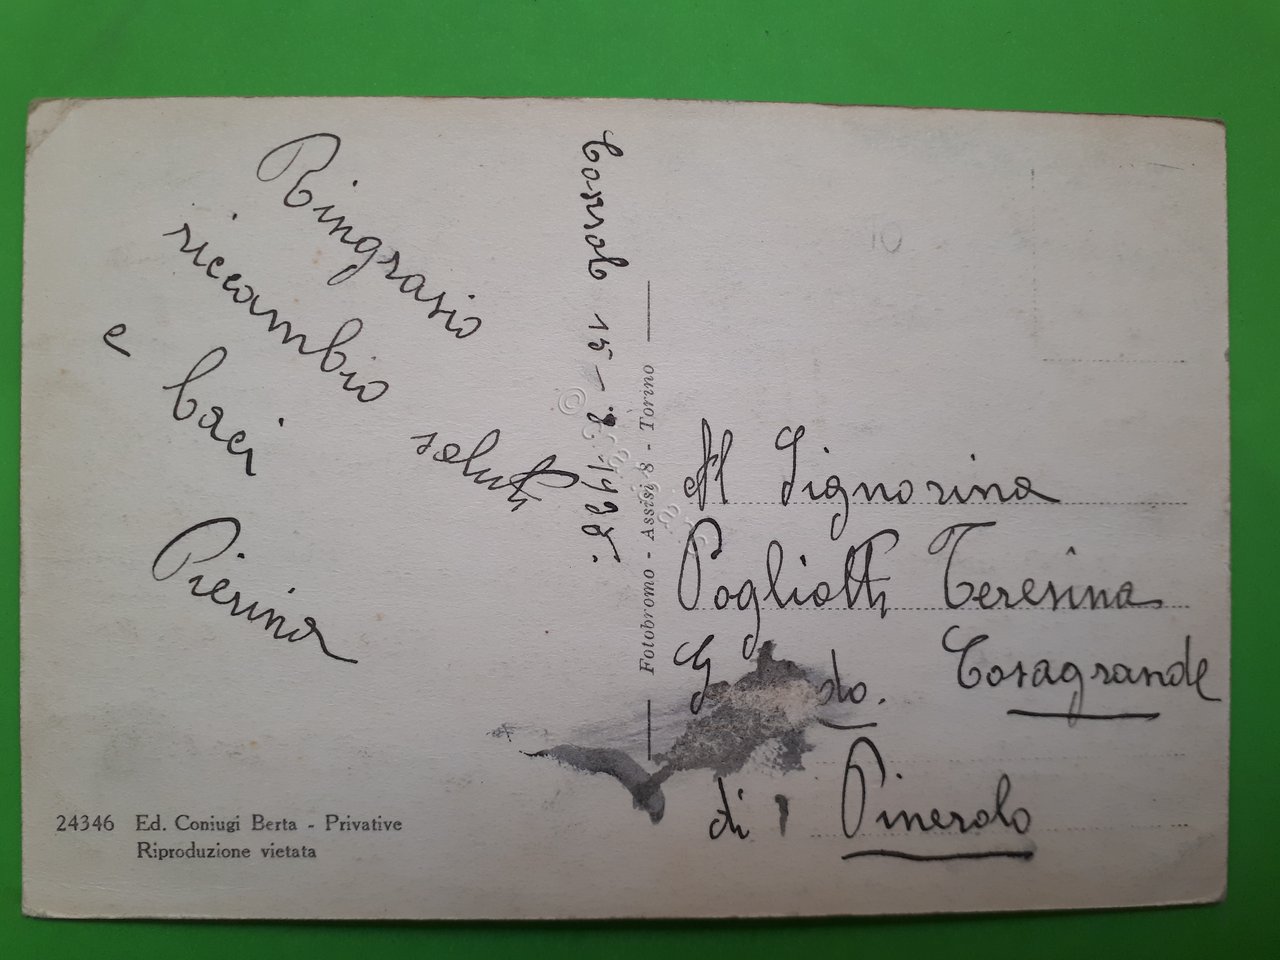 Ringrasio
riccambio saluti
e baci
Pierina
15 - 1925.
Fotobromo - Assisi 8 - Torino
10
All Signorina
Pogliotti Teresina
Casagrande
di Pinerolo
24346 Ed. Coniugi Berta - Privative
Riproduzione vietata